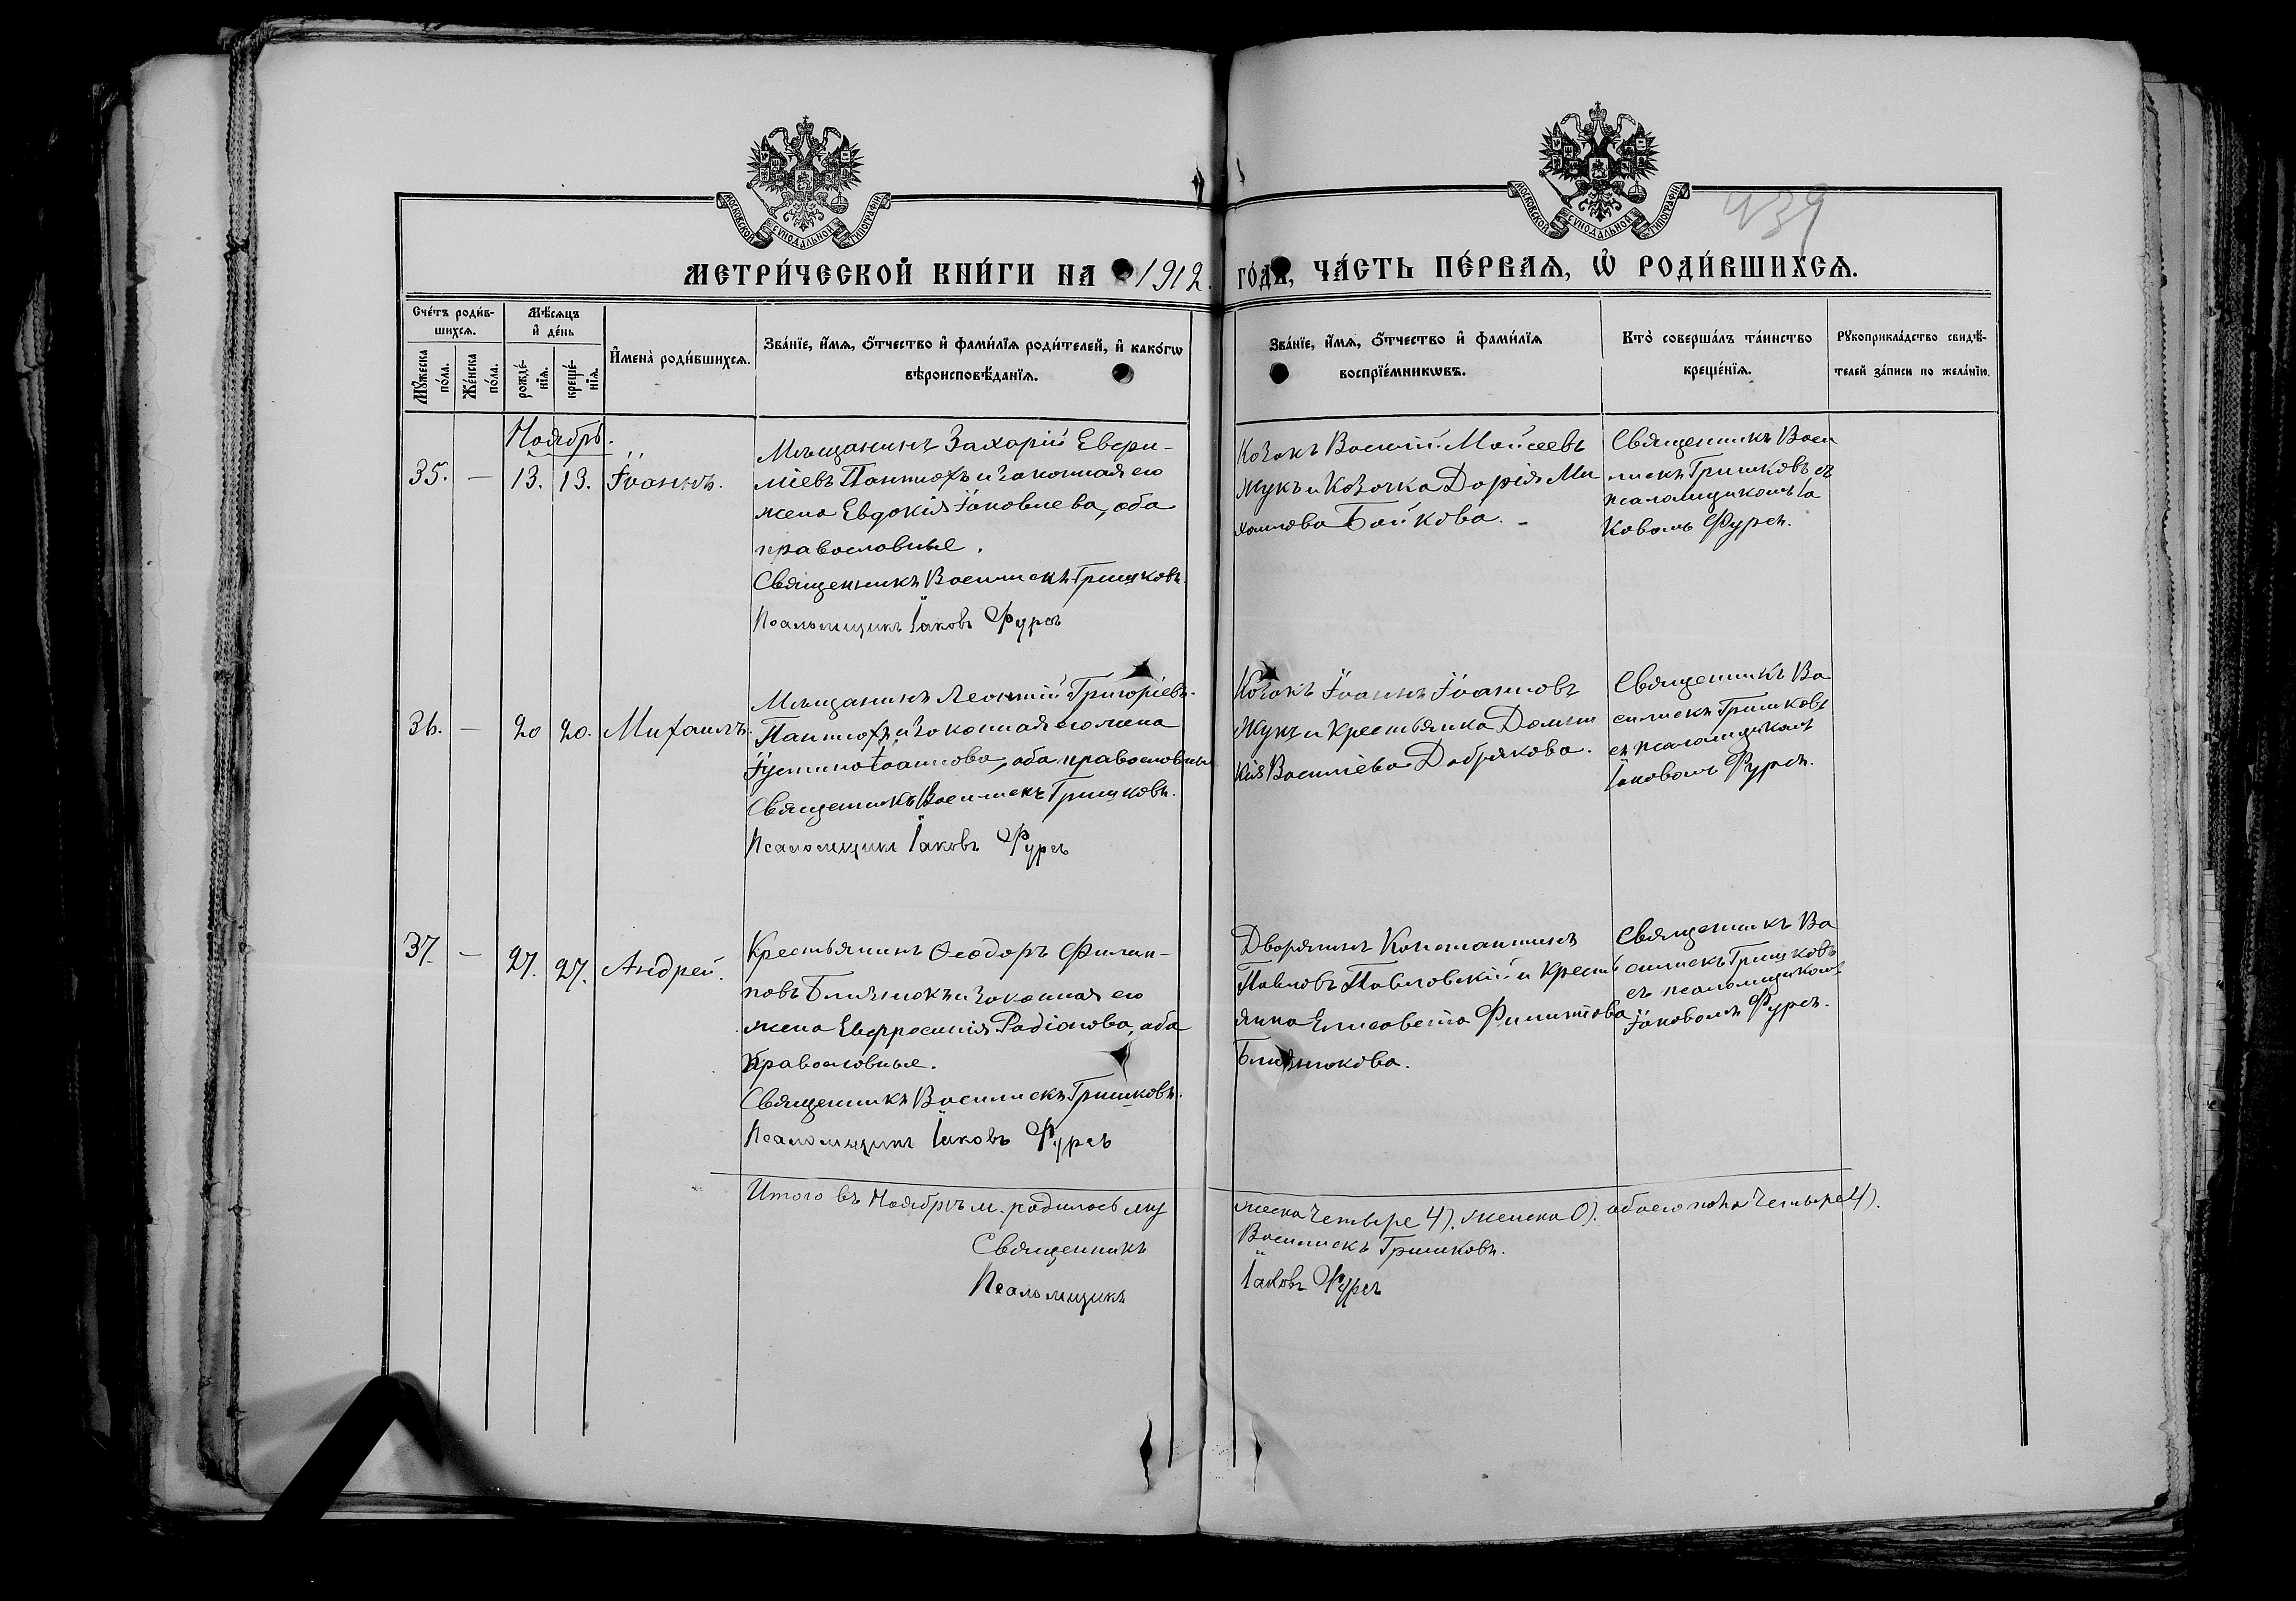 МОСКОВСКОЙ СѴНОДАЛЬНОЙ ТИПОГРАФІИ
МОСКОВСКОЙ СѴНОДАЛЬНОЙ ТИПОГРАФІИ
939
МЕТРИ́ЧЕСКОЙ КНИ́ГИ НА 1912. ГО́ДЪ, ЧА́СТЬ ПЕ́РВАѦ, Ѡ҆ РОДИ́ВШИХСѦ.
Сче́тъ роди́в-
шихсѧ.
Мѣ́сѧцъ
и҆ де́нь
Мꙋ́жеска
по́ла.
Же́нска
по́ла.
рожде́-
нїѧ.
креще́-
нїѧ.
И҆мена̀ роди́вшихсѧ.
Зва́нїе, и҆́мѧ, ѻ҆́тчество и҆ фами́лїѧ роди́телей, и҆ како́гѡ
вѣроисповѣ́данїѧ.
Зва́нїе, и҆́мѧ, ѻ҆́тчество и҆ фами́лїѧ
воспрїе́мникѡвъ.
Кто̀ соверша́лъ та́инство
креще́нїѧ.
Рꙋкоприкла́дство свидѣ́-
телей за́писи по жела́нїю.
Ноябрь.
35. — 13. 13. Іоаннъ.
Мѣщанинъ Захарій Евѳи-
міевъ Пантюхъ и законная его
жена Евдокія Іаковлева, оба
православные.
Священникъ Василискъ Гришковъ.
Псаломщикъ Іаковъ Фурсъ
Козакъ Василій Моисеевъ
Жукъ и Козачка Дарія Ми
хаилова Бойкова. -
Священникъ Васи
лискъ Гришковъ съ
псаломщикомъ Іа
ковомъ Фурсъ.
36. — 20 20. Михаилъ.
Мѣщанинъ Леонтій Григоріевъ
Пантюхъ и законная его жена
Іустина Іоаннова, оба православные
Священникъ Василискъ Гришковъ.
Псаломщикъ Іаковъ Фурсъ
Козакъ Іоаннъ Іоанновъ
Жукъ и крестьянка Домни
кія Василіева Добрякова.
Священникъ Ва
силискъ Гришковъ
съ псаломщикомъ
Іаковомъ Фурсъ.
37. — 27. 27. Андрей.
Крестьянинъ Ѳеодоръ Филип-
повъ Близнюкъ и законная его
жена Евфросинія Родіонова, оба
православные.
Священникъ Василискъ Гришковъ.
Псаломщикъ Іаковъ Фурсъ
Дворянинъ Константинъ
Павловъ Павловскій и крестья
янка Елисавета Филиппова
Близнюкова.
Священникъ Ва
силискъ Гришковъ
съ псаломщикомъ
Іаковомъ Фурсъ.
Итого въ Ноябрѣ м. родилось му
жеска четыре 4). женска 0). обоего пола четыре 4).
Священникъ Василискъ Гришковъ.
Псаломщикъ Іаковъ Фурсъ